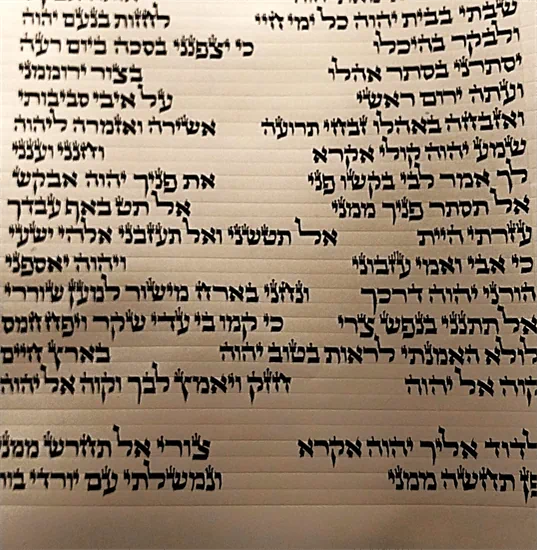 שבתי בבית יהוה כל ימי חיי לחזות בנעם יהוה
ולבקר בהיכלו כי יצפנני בסכה ביום רעה
יסתרני בסתר אהלו בצור ירוממני
ועתה ירום ראשי על איבי סביבותי
ואזבחה באהלו זבחי תרועה אשירה ואזמרה ליהוה
שמע יהוה קולי אקרא וחנני וענני
לך אמר לבי בקשו פני את פניך יהוה אבקש
אל תסתר פניך ממני אל תט באף עבדך
עזרתי היית אל תטשני ואל תעזבני אלהי ישעי
כי אבי ואמי עזבוני ויהוה יאספני
הורני יהוה דרכך ונחני בארח מישור למען שוררי
אל תתנני בנפש צרי כי קמו בי עדי שקר ויפח חמס
לולא האמנתי לראות בטוב יהוה בארץ חיים
קוה אל יהוה חזק ויאמץ לבך וקוה אל יהוה
לדוד אליך יהוה אקרא צורי אל תחרש ממני
פן תחשה ממני ונמשלתי עם יורדי בור